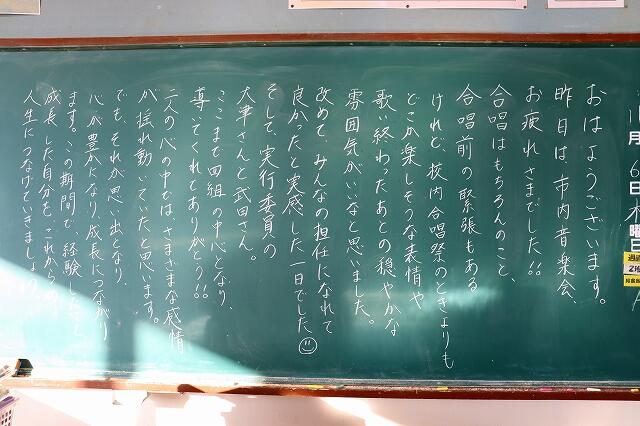 月6日木曜日
おはようございます。
昨日は市内音楽会、
お疲れさまでした!!
合唱はもちろんのこと、
合唱前の緊張もある
けれど、校内合唱祭のときよりも
どこか楽しそうな表情や
歌い終わったあとの穏やかな
雰囲気がいいなと思いました。
改めて、みんなの担任になれて
良かったと実感した一日でした☺
そして、実行委員の
大津さんと武田さん。
ここまで四組の中心となり、
導いてくれてありがとう!!
二人の心の中ではさまざまな感情
が揺れ動いていたと思います。
でも、それが思い出となり、
心が豊かになり、成長につながり
ます。この期間で、経験したこと
成長した自分を、これからの
人生につなげていきましょう。